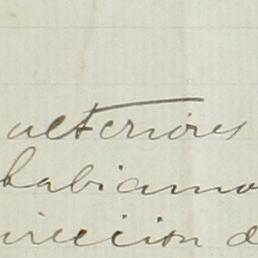 ulteriores
habiamo
irección d